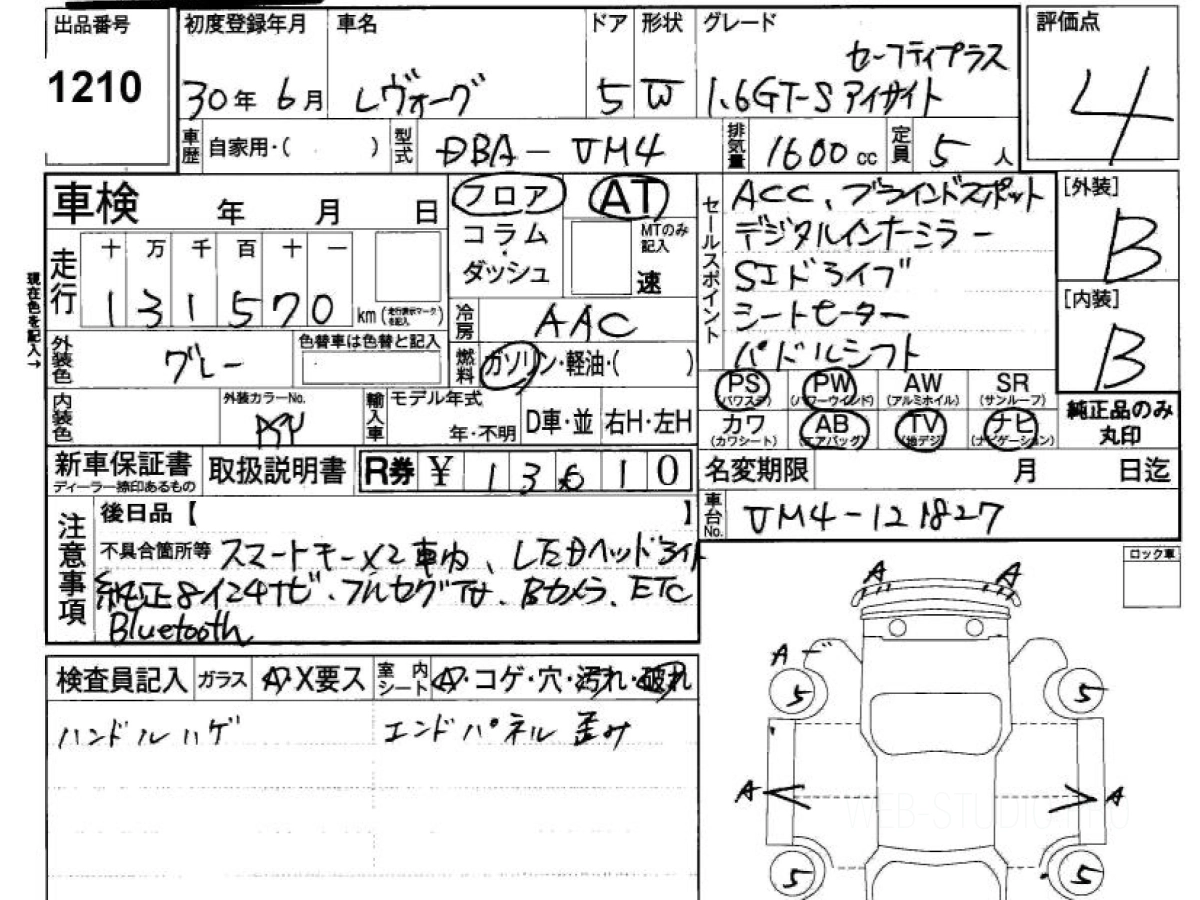 出品番号
1210
初度登録年月
30年 6月
車名
レヴォーグ
ドア
5
形状
W
グレード
セーフティプラス
1.6GT-S アイサイト
評価点
4
車歴
自家用・( )
型式
DBA-VM4
排気量
1600 cc
定員
5 人
車検 年 月 日
フロア
コラム
・
ダッシュ
AT
MTのみ
記入
速
セールスポイント
ACC、ブラインドスポット
デジタルインナーミラー
SIドライブ
シートヒーター
パドルシフト
[外装]
B
[内装]
B
現在色を記入→
走行
十 万 千 百 十 一
1 3 1 5 7 0
km (走行表示マークを記入)
冷房
AAC
外装色
グレー
色替車は色替と記入
燃料
ガソリン・軽油・( )
内装色
外装カラーNo.
輸入車
モデル年式
年・不明
D車・並
右H・左H
PS
(パワステ)
PW
(パワーウインド)
AW
(アルミホイル)
SR
(サンルーフ)
カワ
(カワシート)
AB
(エアバッグ)
TV
(地デジ)
ナビ
(ナビゲーション)
純正品のみ
丸印
新車保証書
ディーラー捺印あるもの
取扱説明書
R券 ¥ 13610
名変期限 月 日迄
車台No.
VM4-121827
注意事項
後日品【 】
不具合箇所等 スマートキーX2 車内、LEDヘッドライト
純正8インチナビ・フルセグTV、Bカメラ、ETC
Bluetooth
ロック車
検査員記入
ガラス
A・X要ス
室内
シート
A・コゲ・穴・汚れ・破れ
ハンドルハゲ
エンドパネル 歪み
A A
A
5 5
A A
5 5
WEB-STUDIO.PRO